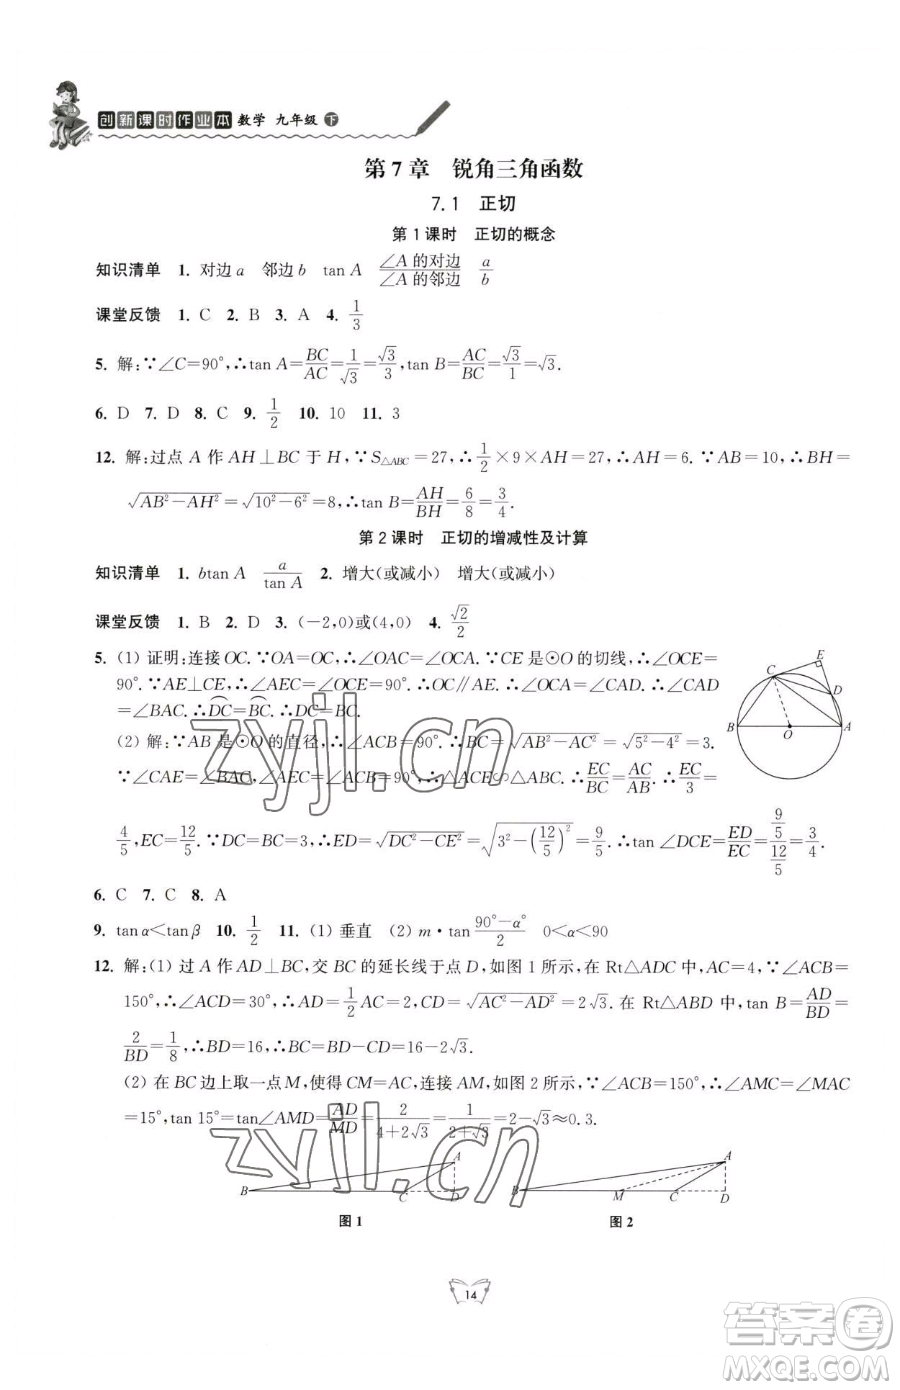 创新课时作业本 数学 九年级 下
第7章 锐角三角函数
7.1 正切
第1课时 正切的概念
知识清单 1. 对边a 邻边b tan A ∠A的对边/∠A的邻边 a/b
课堂反馈 1. C 2. B 3. A 4. 1/3
5. 解:∵∠C=90°,∴tan A=BC/AC=1/√3=√3/3,tan B=AC/BC=√3/1=√3.
6. D 7. D 8. C 9. 1/2 10. 10 11. 3
12. 解:过点A作AH⊥BC于H,∵S△ABC=27,∴1/2×9×AH=27,∴AH=6.∵AB=10,∴BH=
√(AB²-AH²)=√(10²-6²)=8,∴tan B=AH/BH=6/8=3/4.
第2课时 正切的增减性及计算
知识清单 1. btan A a/tan A 2. 增大(或减小) 增大(或减小)
课堂反馈 1. B 2. D 3. (-2,0)或(4,0) 4. √2/2
5. (1) 证明:连接OC.∵OA=OC,∴∠OAC=∠OCA.∵CE是⊙O的切线,∴∠OCE=
90°.∵AE⊥CE,∴∠AEC=∠OCE=90°.∴OC∥AE.∴∠OCA=∠CAD.∴∠CAD
=∠BAC.∴DC⌒=BC⌒.∴DC=BC.
(2) 解:∵AB是⊙O的直径,∴∠ACB=90°.∴BC=√(AB²-AC²)=√(5²-4²)=3.
∵∠CAE=∠BAC,∠AEC=∠ACB=90°,∴△ACE∽△ABC.∴EC/BC=AC/AB.∴EC/3=
4/5,EC=12/5.∵DC=BC=3,∴ED=√(DC²-CE²)=√(3²-(12/5)²)=9/5.∴tan∠DCE=ED/EC=(9/5)/(12/5)=3/4.
E
C
D
B
O
A
6. C 7. C 8. A
9. tanα<tanβ 10. 1/2 11. (1) 垂直 (2) m·tan (90°-α°)/2 0<α<90
12. 解:(1) 过A作AD⊥BC,交BC的延长线于点D,如图1所示,在Rt△ADC中,AC=4,∵∠ACB=
150°,∴∠ACD=30°,∴AD=1/2AC=2,CD=√(AC²-AD²)=2√3.在Rt△ABD中,tan B=AD/BD=
2/BD=1/8,∴BD=16,∴BC=BD-CD=16-2√3.
(2) 在BC边上取一点M,使得CM=AC,连接AM,如图2所示,∵∠ACB=150°,∴∠AMC=∠MAC
=15°,tan 15°=tan∠AMD=AD/MD=2/(4+2√3)=1/(2+√3)=2-√3≈0.3.
A
B
C
D
图1
A
B
M
C
D
图2
14
zyjl.cn
zyjl.cn
答案圈
MXQE.COM